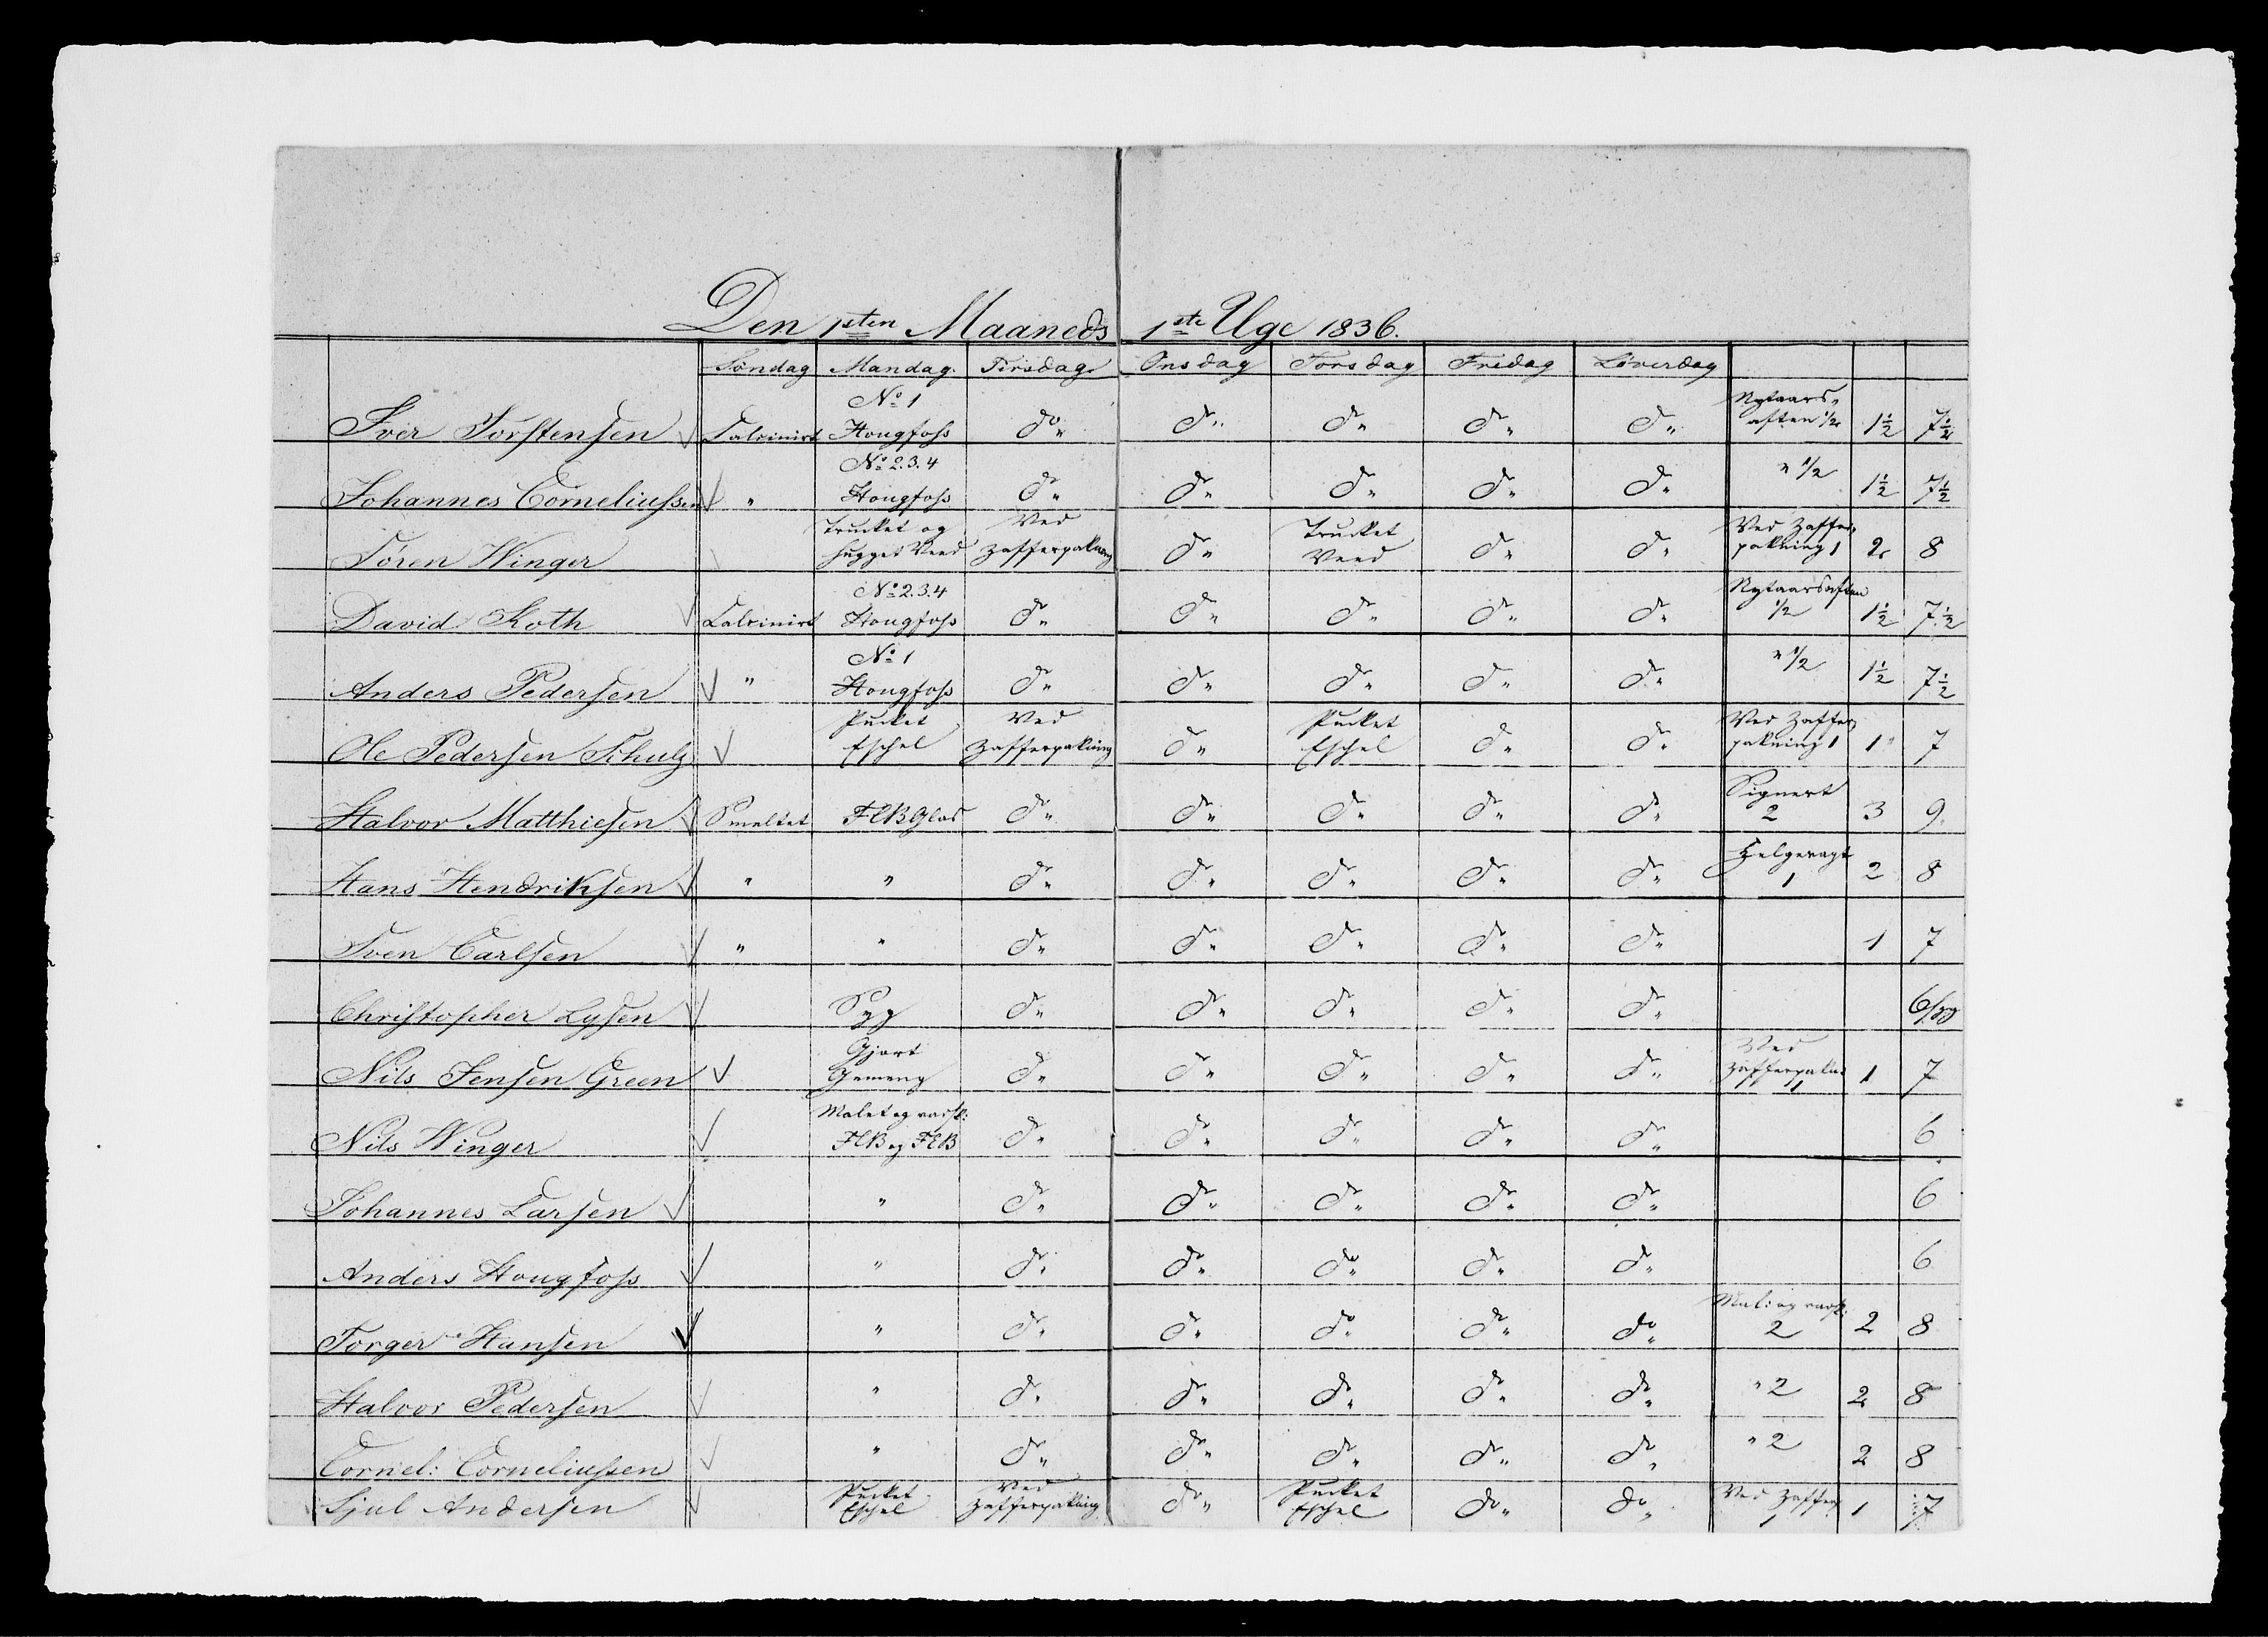 Den 1sten Maaneds 1ste Uge 1836.
Søndag Mandag. Tirsdag Onsdag Torsdag Fredag Løverdag
Iver Torstensen Calcinirt No 1 Hougfoss do " do " do " do " do " Nytaars- aften 1/2 1 1/2 7 1/2
Johannes Corneliussen " No 2.3.4 Hougfoss do " do " do " do " do " " 1/2 1 1/2 7 1/2
Søren Winger Trucket og hugget Veed Ved Zafferpakning do " Trucket Veed do " do " Ved Zaffer- pakning 1 2 8
David Koth Calcinirt No 2.3.4 Hougfoss do " do " do " do " do " Nytaarsaften 1/2 1 1/2 7 1/2
Anders Pedersen " No 1 Hougfoss do " do " do " do " do " " 1/2 1 1/2 7 1/2
Ole Pedersen Schulz Pucket Eschel Ved Zafferpakning do " Pucket Eschel do " do " Ved Zaffer- pakning 1 1 7
Halvor Matthiesen Smeltet FCB Glas do " do " do " do " do " Signert 2 3 9
Hans Hendriksen " " do " do " do " do " do " Helgevagt 1 2 8
Sven Carlsen " " do " do " do " do " do " 1 7
Christopher Lysen Syg do " do " do " do " do "
Nils Jensen Green Gjort Gemeng do " do " do " do " do " Ved Zafferpakn: 1 1 7
Nils Winger Malet og vask: FCB og FEB do " do " do " do " do " 6
Johannes Larsen " do " do " do " do " do " 6
Anders Hougfoss " do " do " do " do " do " 6
Torger Hansen " do " do " do " do " do " Mal: og vask: 2 2 8
Halvor Pedersen " do " do " do " do " do " " 2 2 8
Cornel: Corneliussen " do " do " do " do " do " " 2 2 8
Sjul Andersen Pucket Eschel Ved Zafferpakning do " Pucket Eschel do " do " Ved Zaffer 1 1 7